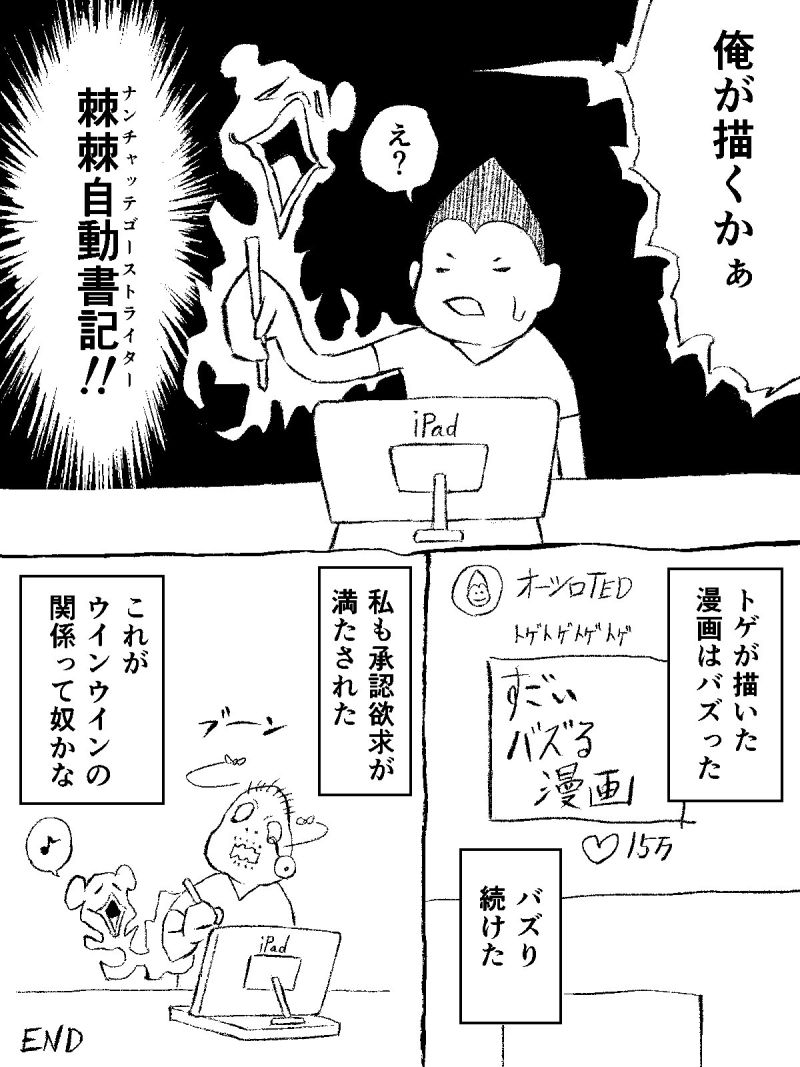 俺が描くかぁ
え?
ナンチャッテゴーストライター
棘棘自動書記!!
iPad
トゲが描いた
漫画はバズった
オーシロTED
トゲトゲトゲトゲ
すごい
バズる
漫画
♡15万
バズり
続けた
私も承認欲求が
満たされた
ブーン
これが
ウインウインの
関係って奴かな
♪
iPad
END